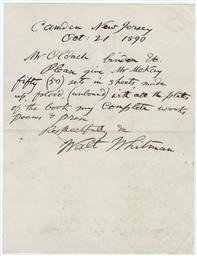 Camden New Jersey
Oct: 21 1890
Mr Oldach binder &c
Please give Mr McKay
fifty (50) sets in sheets, made
up, folded (unbound) with all the plates
of the book my complete works
poems & prose
Respectfully &c
Walt Whitman